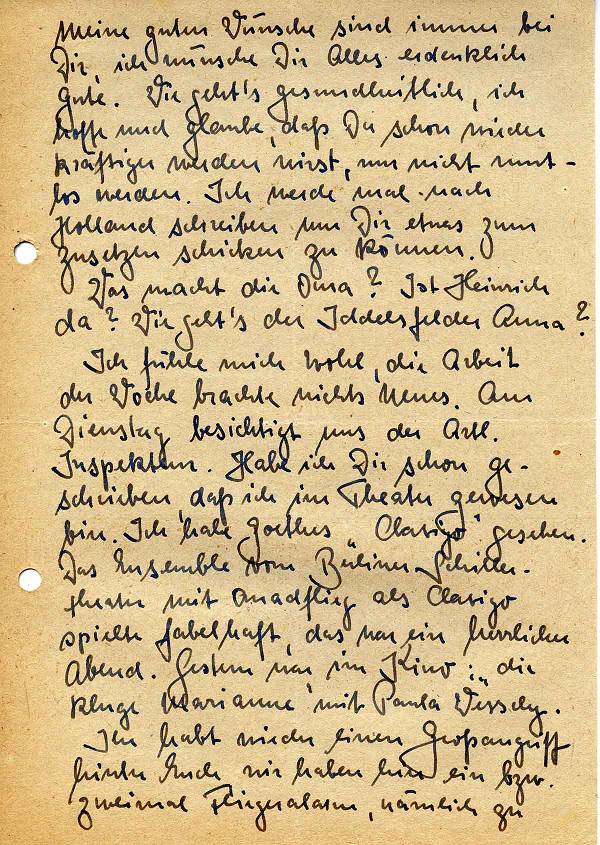 Meine guten Wünsche sind immer bei
Dir, ich wünsche Dir Alles erdenklich
Gute. Wie geht's gesundheitlich, ich
hoffe und glaube, daß Du schon wieder
kräftiger werden wirst, nur nicht mut-
los werden. Ich werde mal nach
Holland schreiben um Dir etwas zum
zusetzen schicken zu können.
Was macht die Oma? Ist Heinrich
da? Wie geht's der Iddelsfelder Anna?
Ich fühle mich wohl, die Arbeit
der Woche brachte nichts Neues. Am
Dienstag besichtigt uns der Artl.
Inspekteur. Habe ich Dir schon ge-
schrieben, daß ich im Theater gewesen
bin. Ich habe Goethes „Clavigo" gesehen.
Das Ensemble vom Berliner Schiller-
theater mit Quadflieg als Clavigo
spielte fabelhaft, das war ein herrlicher
Abend. Gestern war im Kino: „die
kluge Marianne" mit Paula Wessely.
Ihr habt wieder einen Großangriff
hinter Euch wir haben hier ein bzw.
zweimal Fliegeralarm, nämlich zu